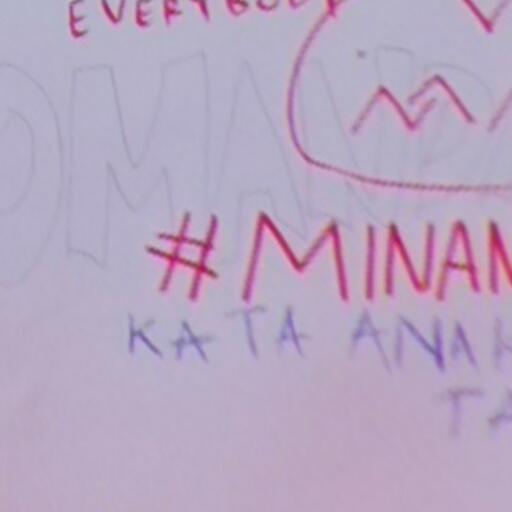 EVERYBODY
#MINAN
KATA ANAK
TA